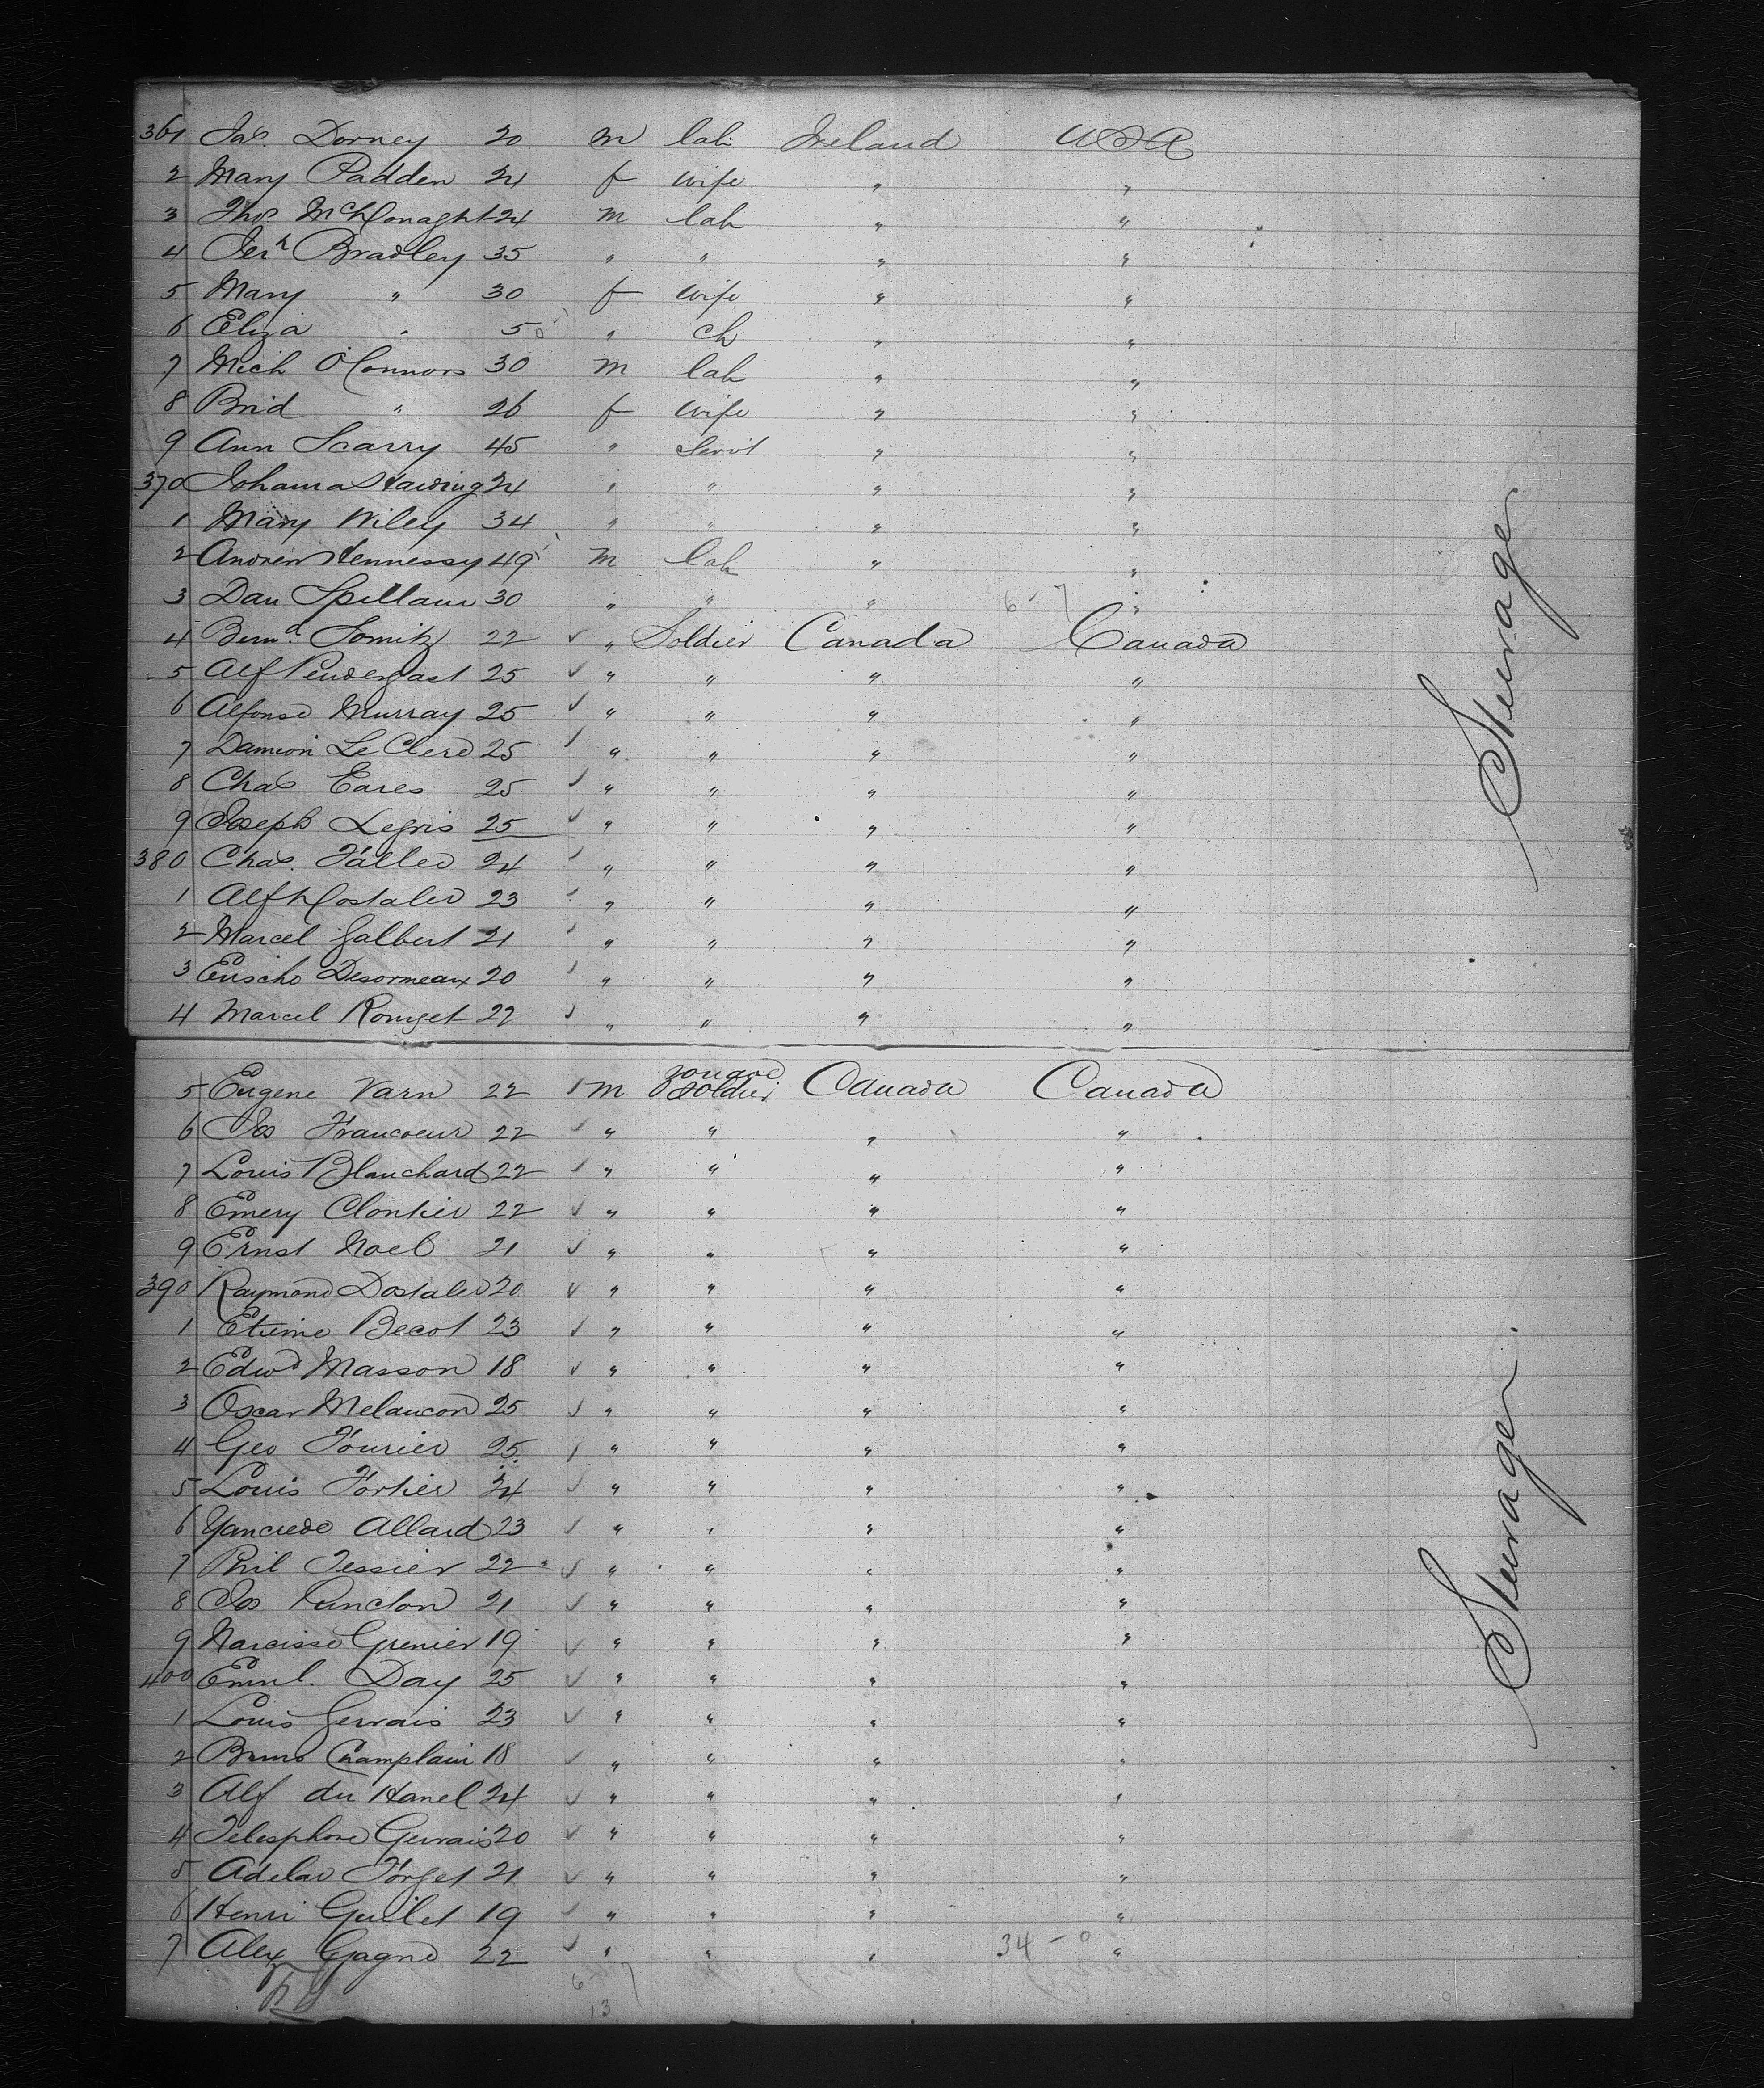 361 Jas. Dorney 20 m lab Ireland USA
2 Mary Padden 24 f wife " "
3 Thos. McDonaght 24 m lab " "
4 Jerh Bradley 35 " " " "
5 Mary " 30 f wife " "
6 Eliza " 5 " ch " "
7 Mich O'Connors 30 m lab " "
8 Brid " 26 f wife " "
9 Ann Scarry 45 " Servt " "
370 Johanna Hawing 24 " " " "
1 Mary Wiley 34 " " " "
2 Andrew Hennessy 49 m lab " "
3 Dan Spillane 30 " " " 6-7 "
4 Bernd. 22 " Soldier Canada Canada
5 Alf Pendergast 25 " " " "
6 Alfonse Murray 25 " " " "
7 Damion Le Clerc 25 " " " "
8 Chas Eares 25 " " " "
9 Joseph Legris 25 " " " "
380 Chas. 24 " " " "
1 Alf 23 " " " "
2 Marcel Galbert 21 " " " "
3 Desormeaux 20 " " " "
4 Marcel 22 " " " "
Steerage
5 Eugene Varn 22 m zouave soldier Canada Canada
6 Jos Francoeur 22 " " " "
7 Louis Blanchard 22 " " " "
8 Emery Cloutier 22 " " " "
9 Ernst Noel 21 " " " "
390 Raymond Dostaler 20 " " " "
1 Etiene Becot 23 " " " "
2 Edwd Masson 18 " " " "
3 Oscar Melancon 25 " " " "
4 Geo Fourier 25 " " " "
5 Louis Fortier 24 " " " "
6 Yancrede Allard 23 " " " "
7 Phil Tessier 22 " " " "
8 Jos 21 " " " "
9 Narcisse Grenier 19 " " " "
400 Emnl. Day 25 " " " "
1 Louis Gervais 23 " " " "
2 Bruno Champlain 18 " " " "
3 Alf du Hanel 24 " " " "
4 Telesphore Gervais 20 " " " "
5 Adelar Forget 21 " " " "
6 Henri Guillet 19 " " " "
7 Alex Gagne 22 " " " 34-0 "
6 7
13
Steerage